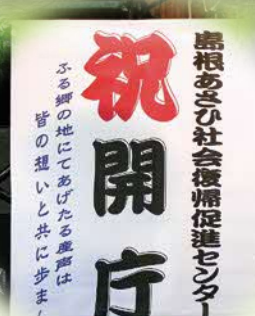 島根あさひ社会復帰促進センター
祝開庁
ふる郷の地にてあげたる産声は
皆の想いと共に歩ま